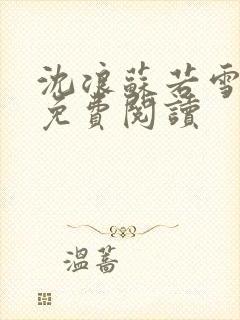 沈浪蘇若雪
免費閱讀
溫蒿